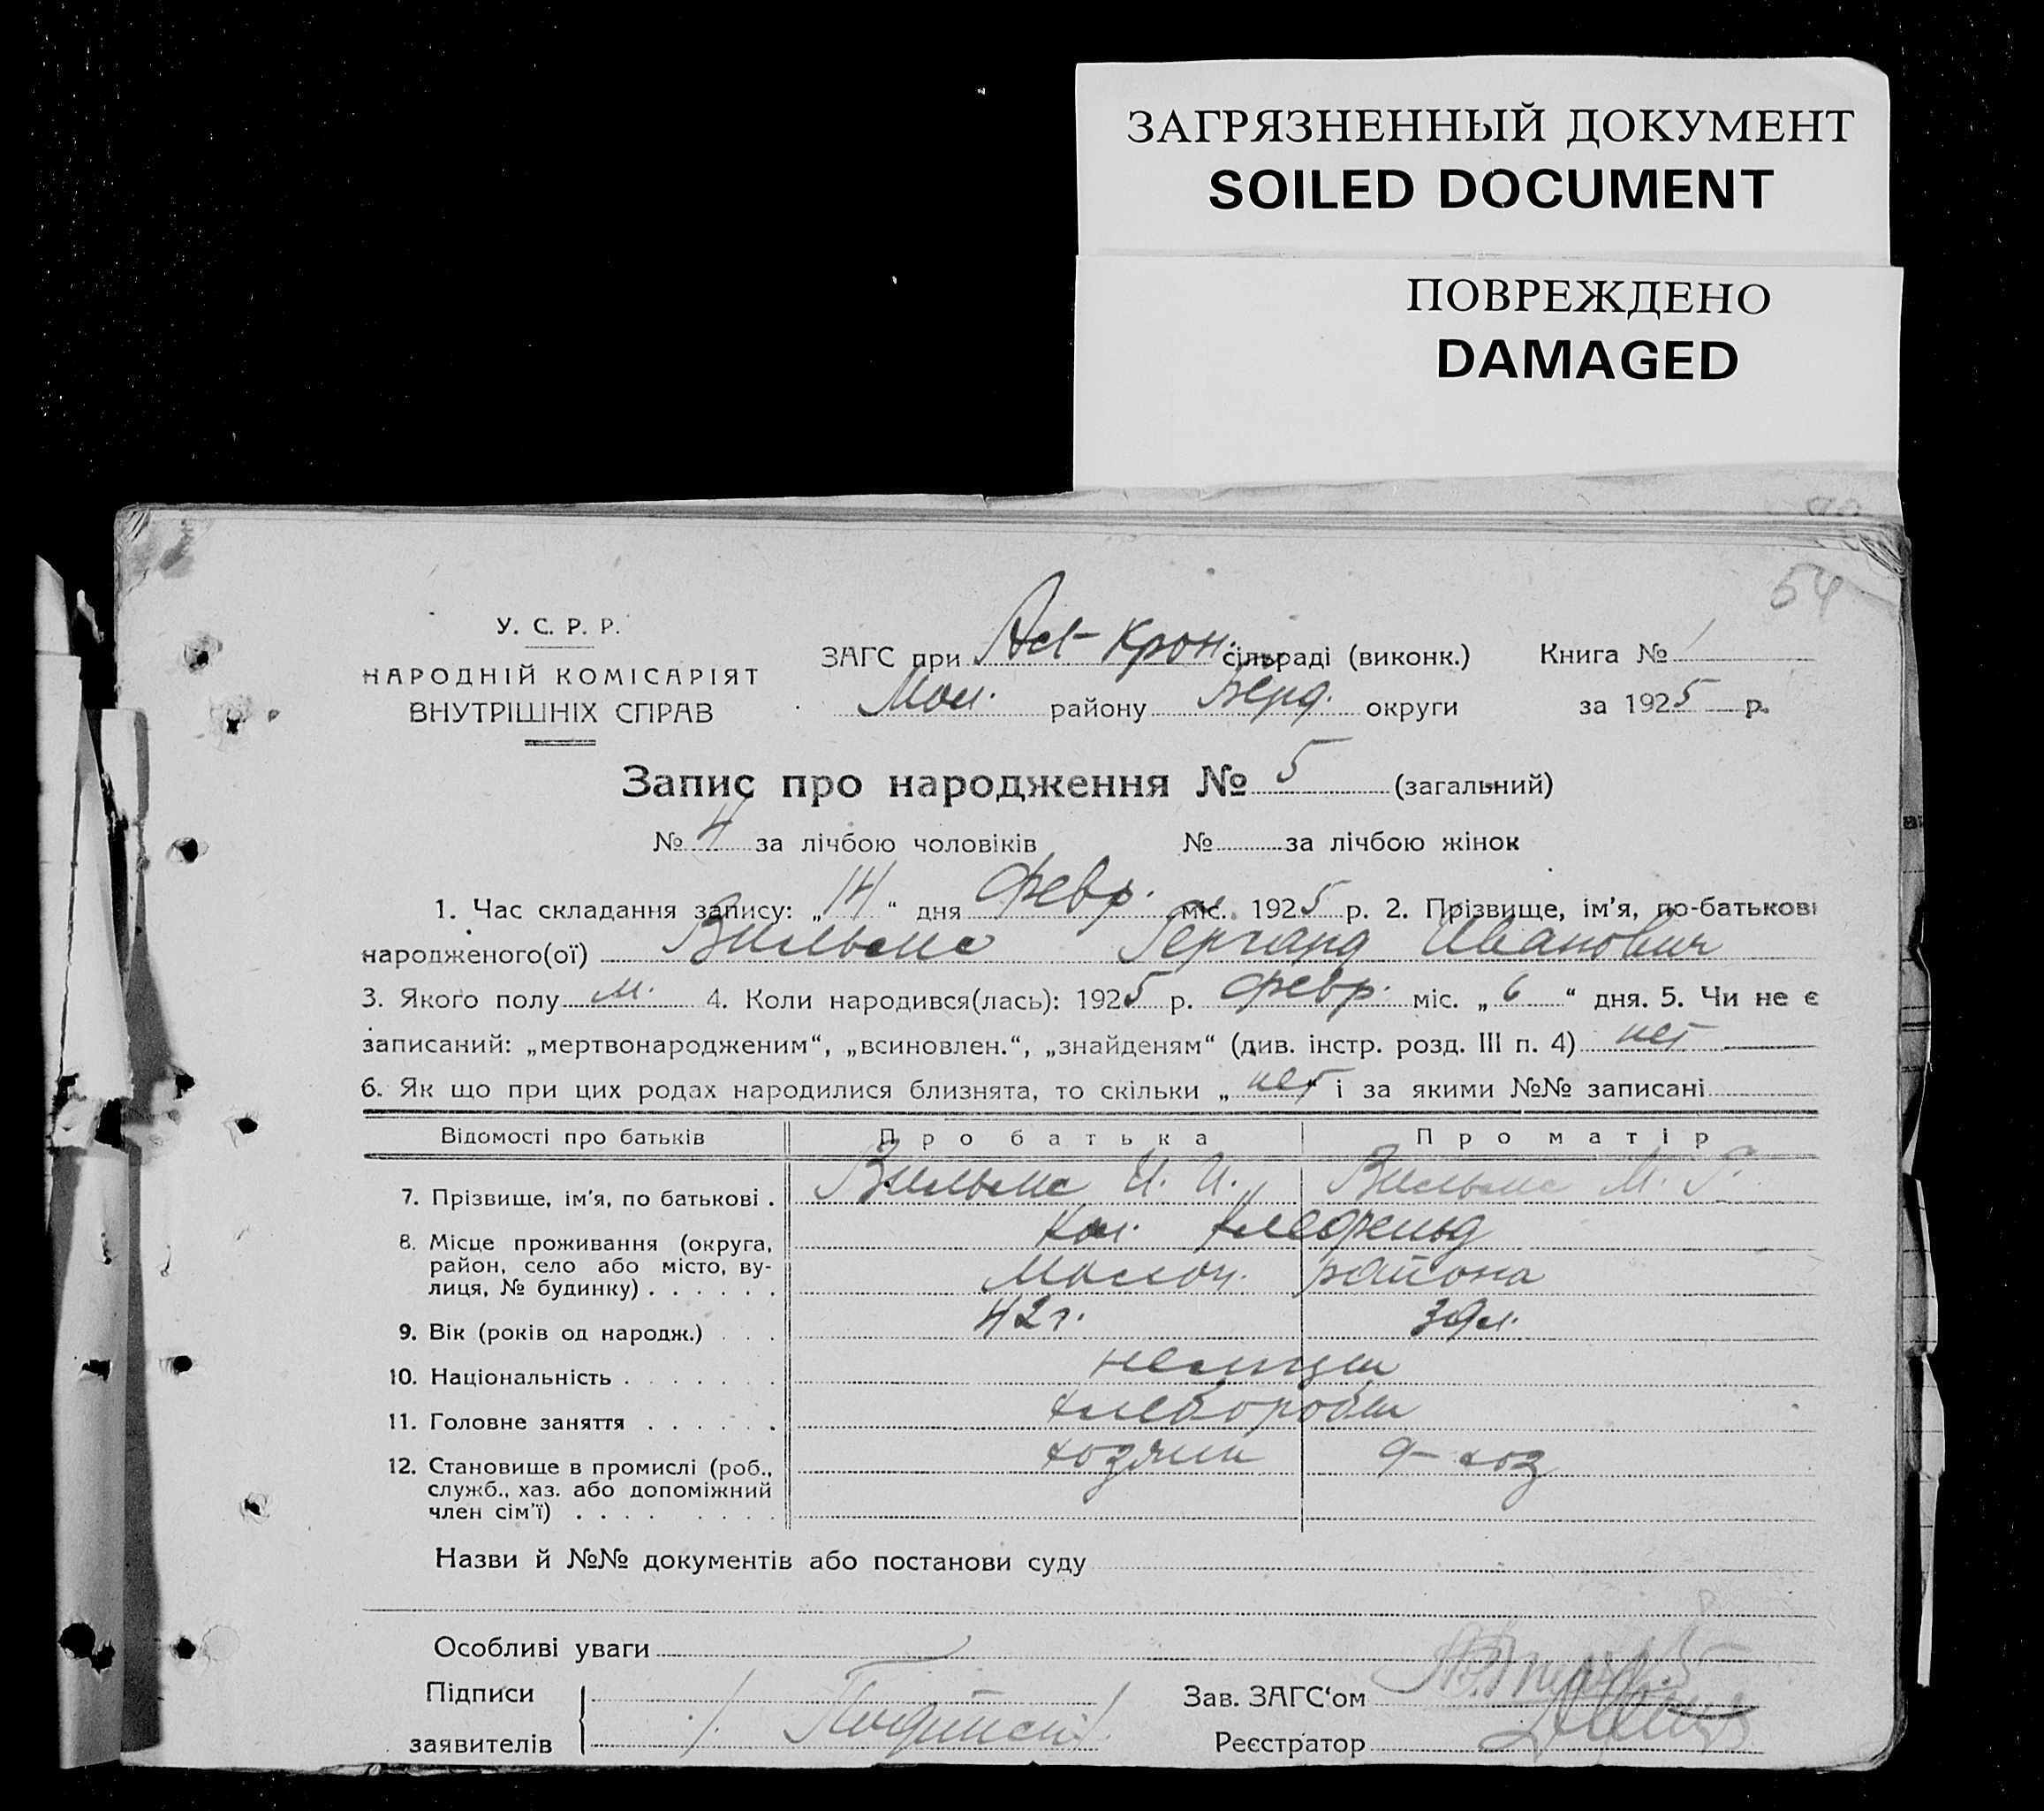 ЗАГРЯЗНЕННЫЙ ДОКУМЕНТ
SOILED DOCUMENT
ПОВРЕЖДЕНО
DAMAGED
54
У. С. Р. Р.
НАРОДНІЙ КОМІСАРІЯТ
ВНУТРІШНІХ СПРАВ
ЗАГС при Аст-Крон. сільраді (виконк.) Книга № 1
Мол. району Берд. округи за 1925 р.
Запис про народження № 5 (загальний)
№ 4 за лічбою чоловіків № за лічбою жінок
1. Час складання запису: „14“ дня февр. міс. 1925 р. 2. Прізвище, ім'я, по-батькові
народженого(ої) Вильмс Гергард Иванович
3. Якого полу м. 4. Коли народився(лась): 1925 р. февр. міс. „6“ дня. 5. Чи не є
записаний: „мертвонародженим“, „всиновлен.“, „знайденям“ (див. інстр. розд. III п. 4) нет
6. Як що при цих родах народилися близнята, то скільки „нет“ і за якими №№ записані
Відомості про батьків Про батька Про матір
7. Прізвище, ім'я, по батькові . Вильмс И. И. Вильмс М. Г.
8. Місце проживання (округа, Кол. Клефельд
район, село або місто, ву-
лиця, № будинку) . . . . . . Молоч. района
9. Вік (років од народж.) . . . 42 г. 39 л.
10. Національність . . . . . . . немцы
11. Головне заняття . . . . . . хлеборобы
12. Становище в промислі (роб., хозяин д-хоз
служб., хаз. або допоміжний
член сім'ї) . . . . . . . .
Назви й №№ документів або постанови суду
Особливі уваги
Підписи
заявителів
Зав. ЗАГС'ом
Реєстратор